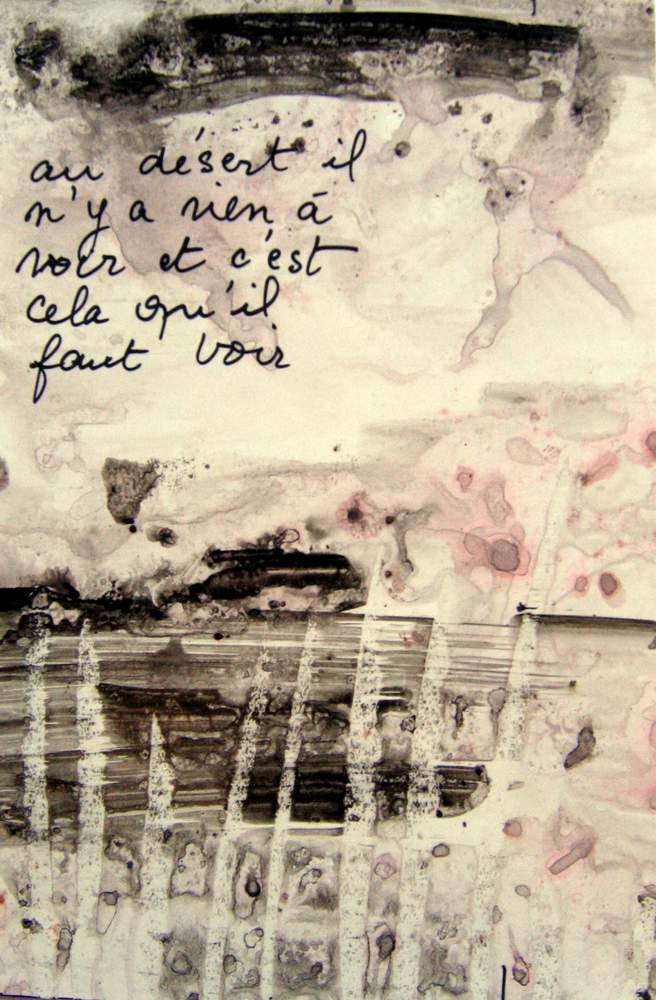 au désert il
n'y a rien à
voir et c'est
cela qu'il
faut voir